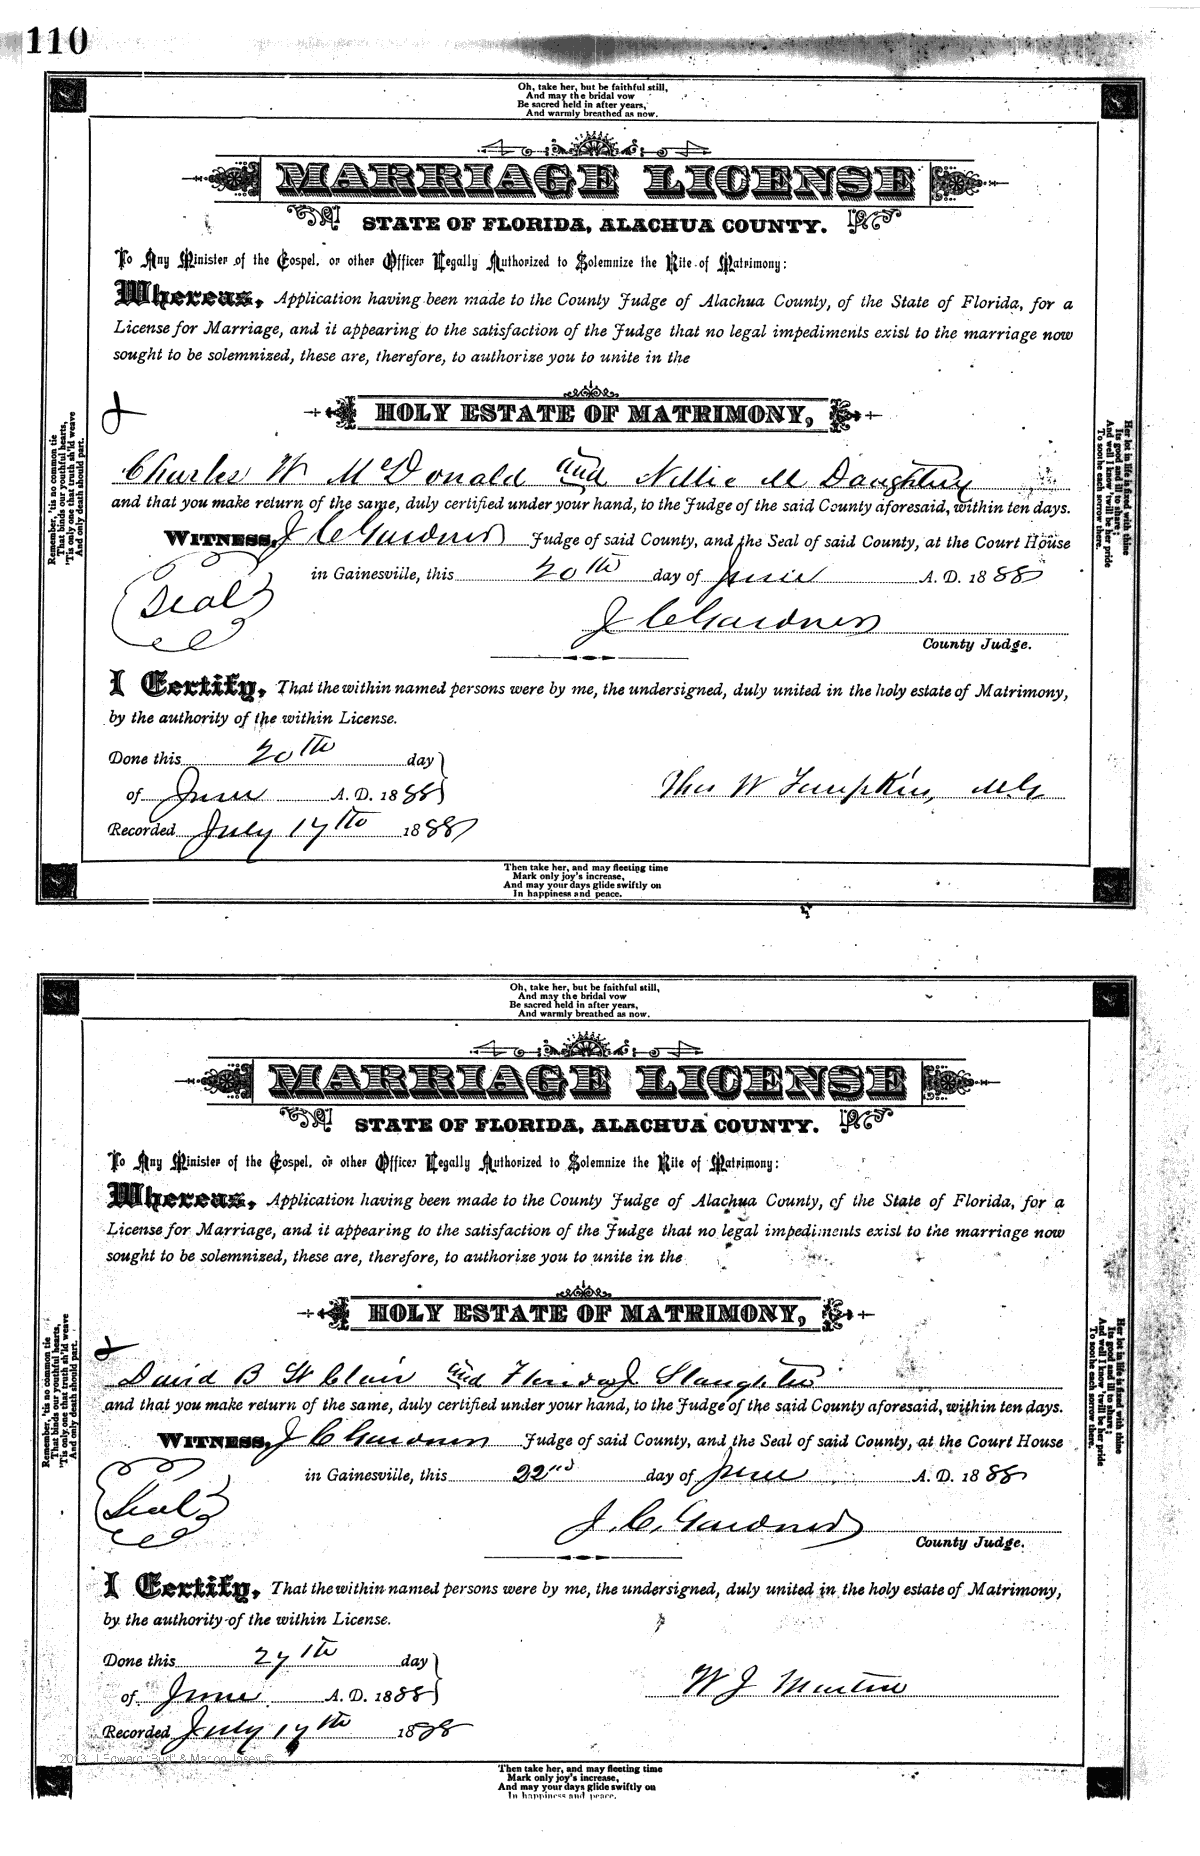 110
Oh, take her, but be faithful still,
And may the bridal vow
Be sacred held in after years,
And warmly breathed as now.
MARRIAGE LICENSE
STATE OF FLORIDA, ALACHUA COUNTY.
To Any Minister of the Gospel, or other Officer Legally Authorized to Solemnize the Rite of Matrimony:
Whereas, Application having been made to the County Judge of Alachua County, of the State of Florida, for a
License for Marriage, and it appearing to the satisfaction of the Judge that no legal impediments exist to the marriage now
sought to be solemnized, these are, therefore, to authorize you to unite in the
HOLY ESTATE OF MATRIMONY,
Charles W McDonald and Nellie M Daughtry
and that you make return of the same, duly certified under your hand, to the Judge of the said County aforesaid, within ten days.
WITNESS, J C Gardner Judge of said County, and the Seal of said County, at the Court House
in Gainesville, this 20th day of June A. D. 1888
Seal
J C Gardner
County Judge.
I Certify, That the within named persons were by me, the undersigned, duly united in the holy estate of Matrimony,
by the authority of the within License.
Done this 20th day
of June A. D. 1888
Thos W Tompkins, M.G.
Recorded July 17th 1888
Remember, 'tis no common tie
That binds our youthful hearts,
'Tis only one that truth sh'ld weave
And only death should part.
Her lot in life is fixed with thine
Its good and ill to share;
And well I know 'twill be her pride
To soothe each sorrow there.
Then take her, and may fleeting time
Mark only joy's increase,
And may your days glide swiftly on
In happiness and peace.
Oh, take her, but be faithful still,
And may the bridal vow
Be sacred held in after years,
And warmly breathed as now.
MARRIAGE LICENSE
STATE OF FLORIDA, ALACHUA COUNTY.
To Any Minister of the Gospel, or other Officer Legally Authorized to Solemnize the Rite of Matrimony:
Whereas, Application having been made to the County Judge of Alachua County, of the State of Florida, for a
License for Marriage, and it appearing to the satisfaction of the Judge that no legal impediments exist to the marriage now
sought to be solemnized, these are, therefore, to authorize you to unite in the
HOLY ESTATE OF MATRIMONY,
David B St Clair and J Slaughter
and that you make return of the same, duly certified under your hand, to the Judge of the said County aforesaid, within ten days.
WITNESS, J C Gardner Judge of said County, and the Seal of said County, at the Court House
in Gainesville, this 22nd day of June A. D. 1888
Seal
J. C. Gardner
County Judge.
I Certify, That the within named persons were by me, the undersigned, duly united in the holy estate of Matrimony,
by the authority of the within License.
Done this 27th day
of June A. D. 1888
W J Martin
Recorded July 17th 1888
Remember, 'tis no common tie
That binds our youthful hearts,
'Tis only one that truth sh'ld weave
And only death should part.
Her lot in life is fixed with thine
Its good and ill to share;
And well I know 'twill be her pride
To soothe each sorrow there.
Then take her, and may fleeting time
Mark only joy's increase,
And may your days glide swiftly on
In happiness and peace.